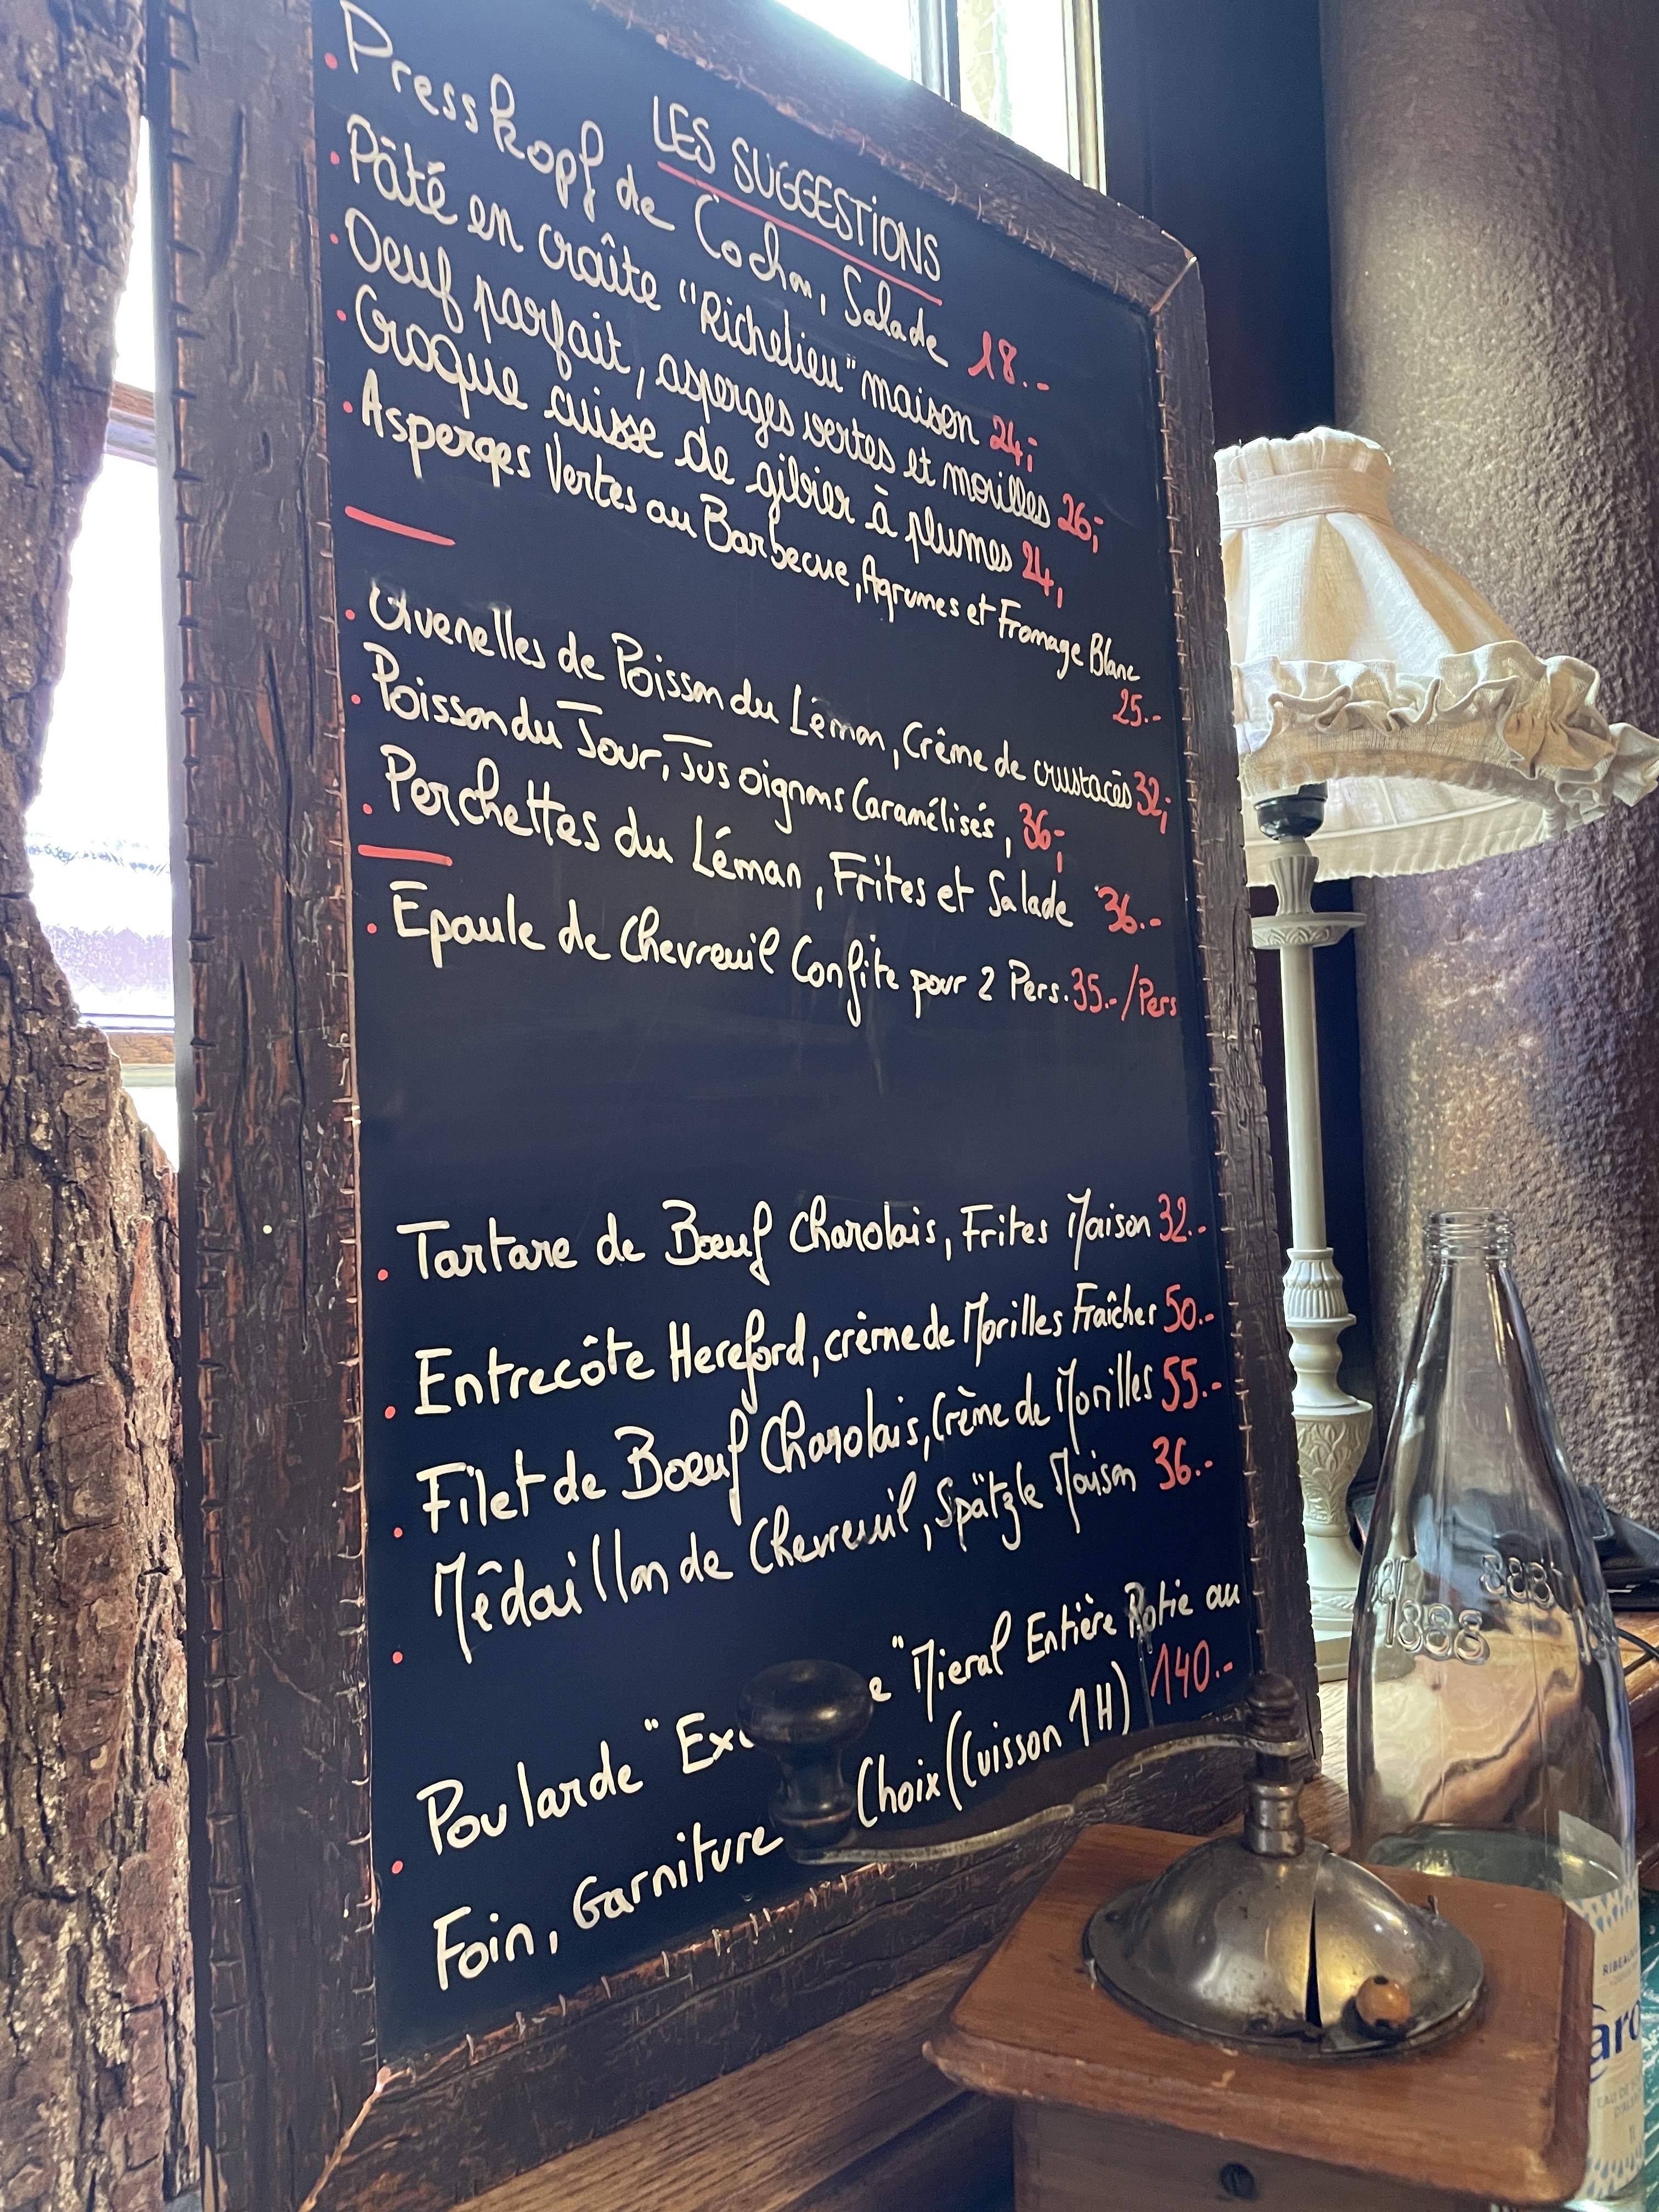 LES SUGGESTIONS
Presskopf de Cochon, Salade 18.-
Pâté en croûte "Richelieu" maison 24,-
Oeuf parfait, asperges vertes et morilles 26,-
Croque cuisse de gibier à plumes 24,
Asperges Vertes au Barbecue, Agrumes et Fromage Blanc
25.-
Quenelles de Poisson du Léman, Crême de crustacés 32,-
Poisson du Jour, Jus oignons Caramélisés, 36,-
Perchettes du Léman, Frites et Salade 36.-
Epaule de Chevreuil Confite pour 2 Pers. 35.-/Pers
Tartare de Bœuf Charolais, Frites Maison 32.-
Entrecôte Hereford, crème de Morilles Fraîches 50.-
Filet de Bœuf Charolais, Crème de Morilles 55.-
Médaillon de Chevreuil, Spätzle Maison 36.-
Poularde "Mieral Entière Rotie au
Foin, Garniture Choix (Cuisson 1H) 140.-
1888